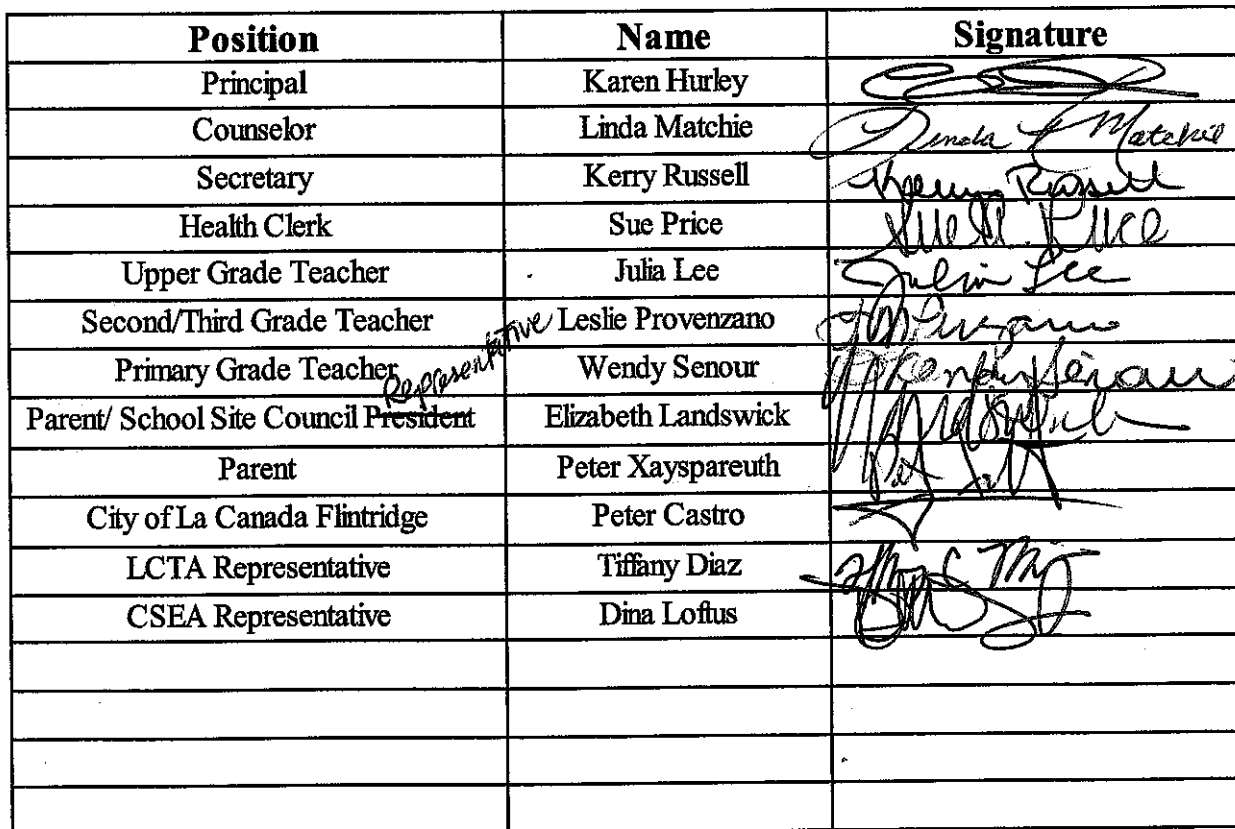 Position Name Signature
Principal Karen Hurley
Counselor Linda Matchie Linda L Matchie
Secretary Kerry Russell Kerry Russell
Health Clerk Sue Price Sue Price
Upper Grade Teacher Julia Lee Julia Lee
Second/Third Grade Teacher Leslie Provenzano
Primary Grade Teacher Wendy Senour Wendy Senour
Representative
Parent/ School Site Council President Elizabeth Landswick
Parent Peter Xayspareuth
City of La Canada Flintridge Peter Castro
LCTA Representative Tiffany Diaz
CSEA Representative Dina Loftus